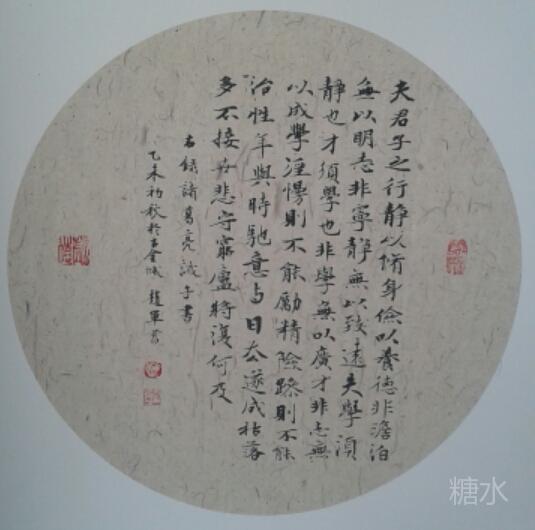 夫君子之行靜以脩身儉以養德非澹泊
無以明志非寧靜無以致遠夫學須
靜也才須學也非學無以廣才非志無
以成學淫慢則不能勵精險躁則不能
治性年與時馳意与日去遂成枯落
多不接世悲守窮廬將復何及
右錄諸葛亮誡子書
乙未初秋於古金城趙軍書
糖水